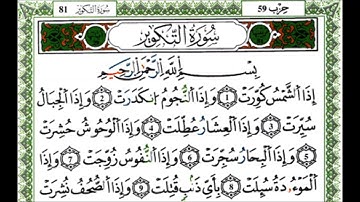 سُورَةُ التَّكْوِيرِ 81 حِزْب 59
سُورَةُ التَّكْوِيرِ
بِسْمِ اللَّهِ الرَّحْمَٰنِ الرَّحِيمِ
إِذَا الشَّمْسُ كُوِّرَتْ 1 وَإِذَا النُّجُومُ انكَدَرَتْ 2 وَإِذَا الْجِبَالُ
سُيِّرَتْ 3 وَإِذَا الْعِشَارُ عُطِّلَتْ 4 وَإِذَا الْوُحُوشُ حُشِرَتْ
5 وَإِذَا الْبِحَارُ سُجِّرَتْ 6 وَإِذَا النُّفُوسُ زُوِّجَتْ 7 وَإِذَا
الْمَوْءُۥدَةُ سُئِلَتْ 8 بِأَيِّ ذَنۢبٍ قُتِلَتْ 9 وَإِذَا الصُّحُفُ نُشِرَتْ